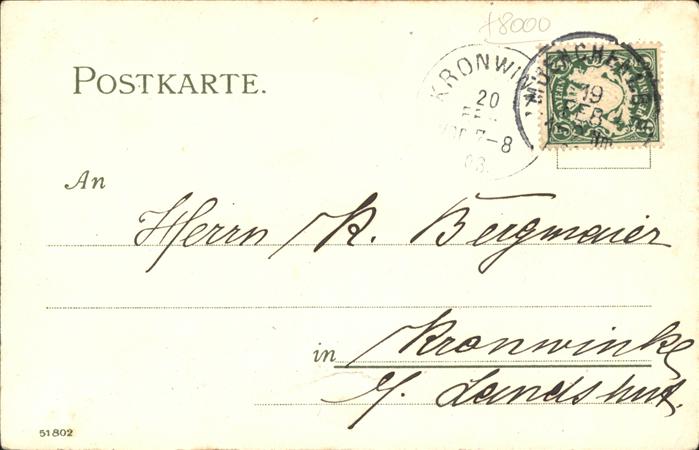 +8000
POSTKARTE.
KRONWIN
20
7-8
03.
MÜNCHEN
19
FEB
An
Herrn K. Bergmaier
in Kronwinkl
b/ Landshut.
51802